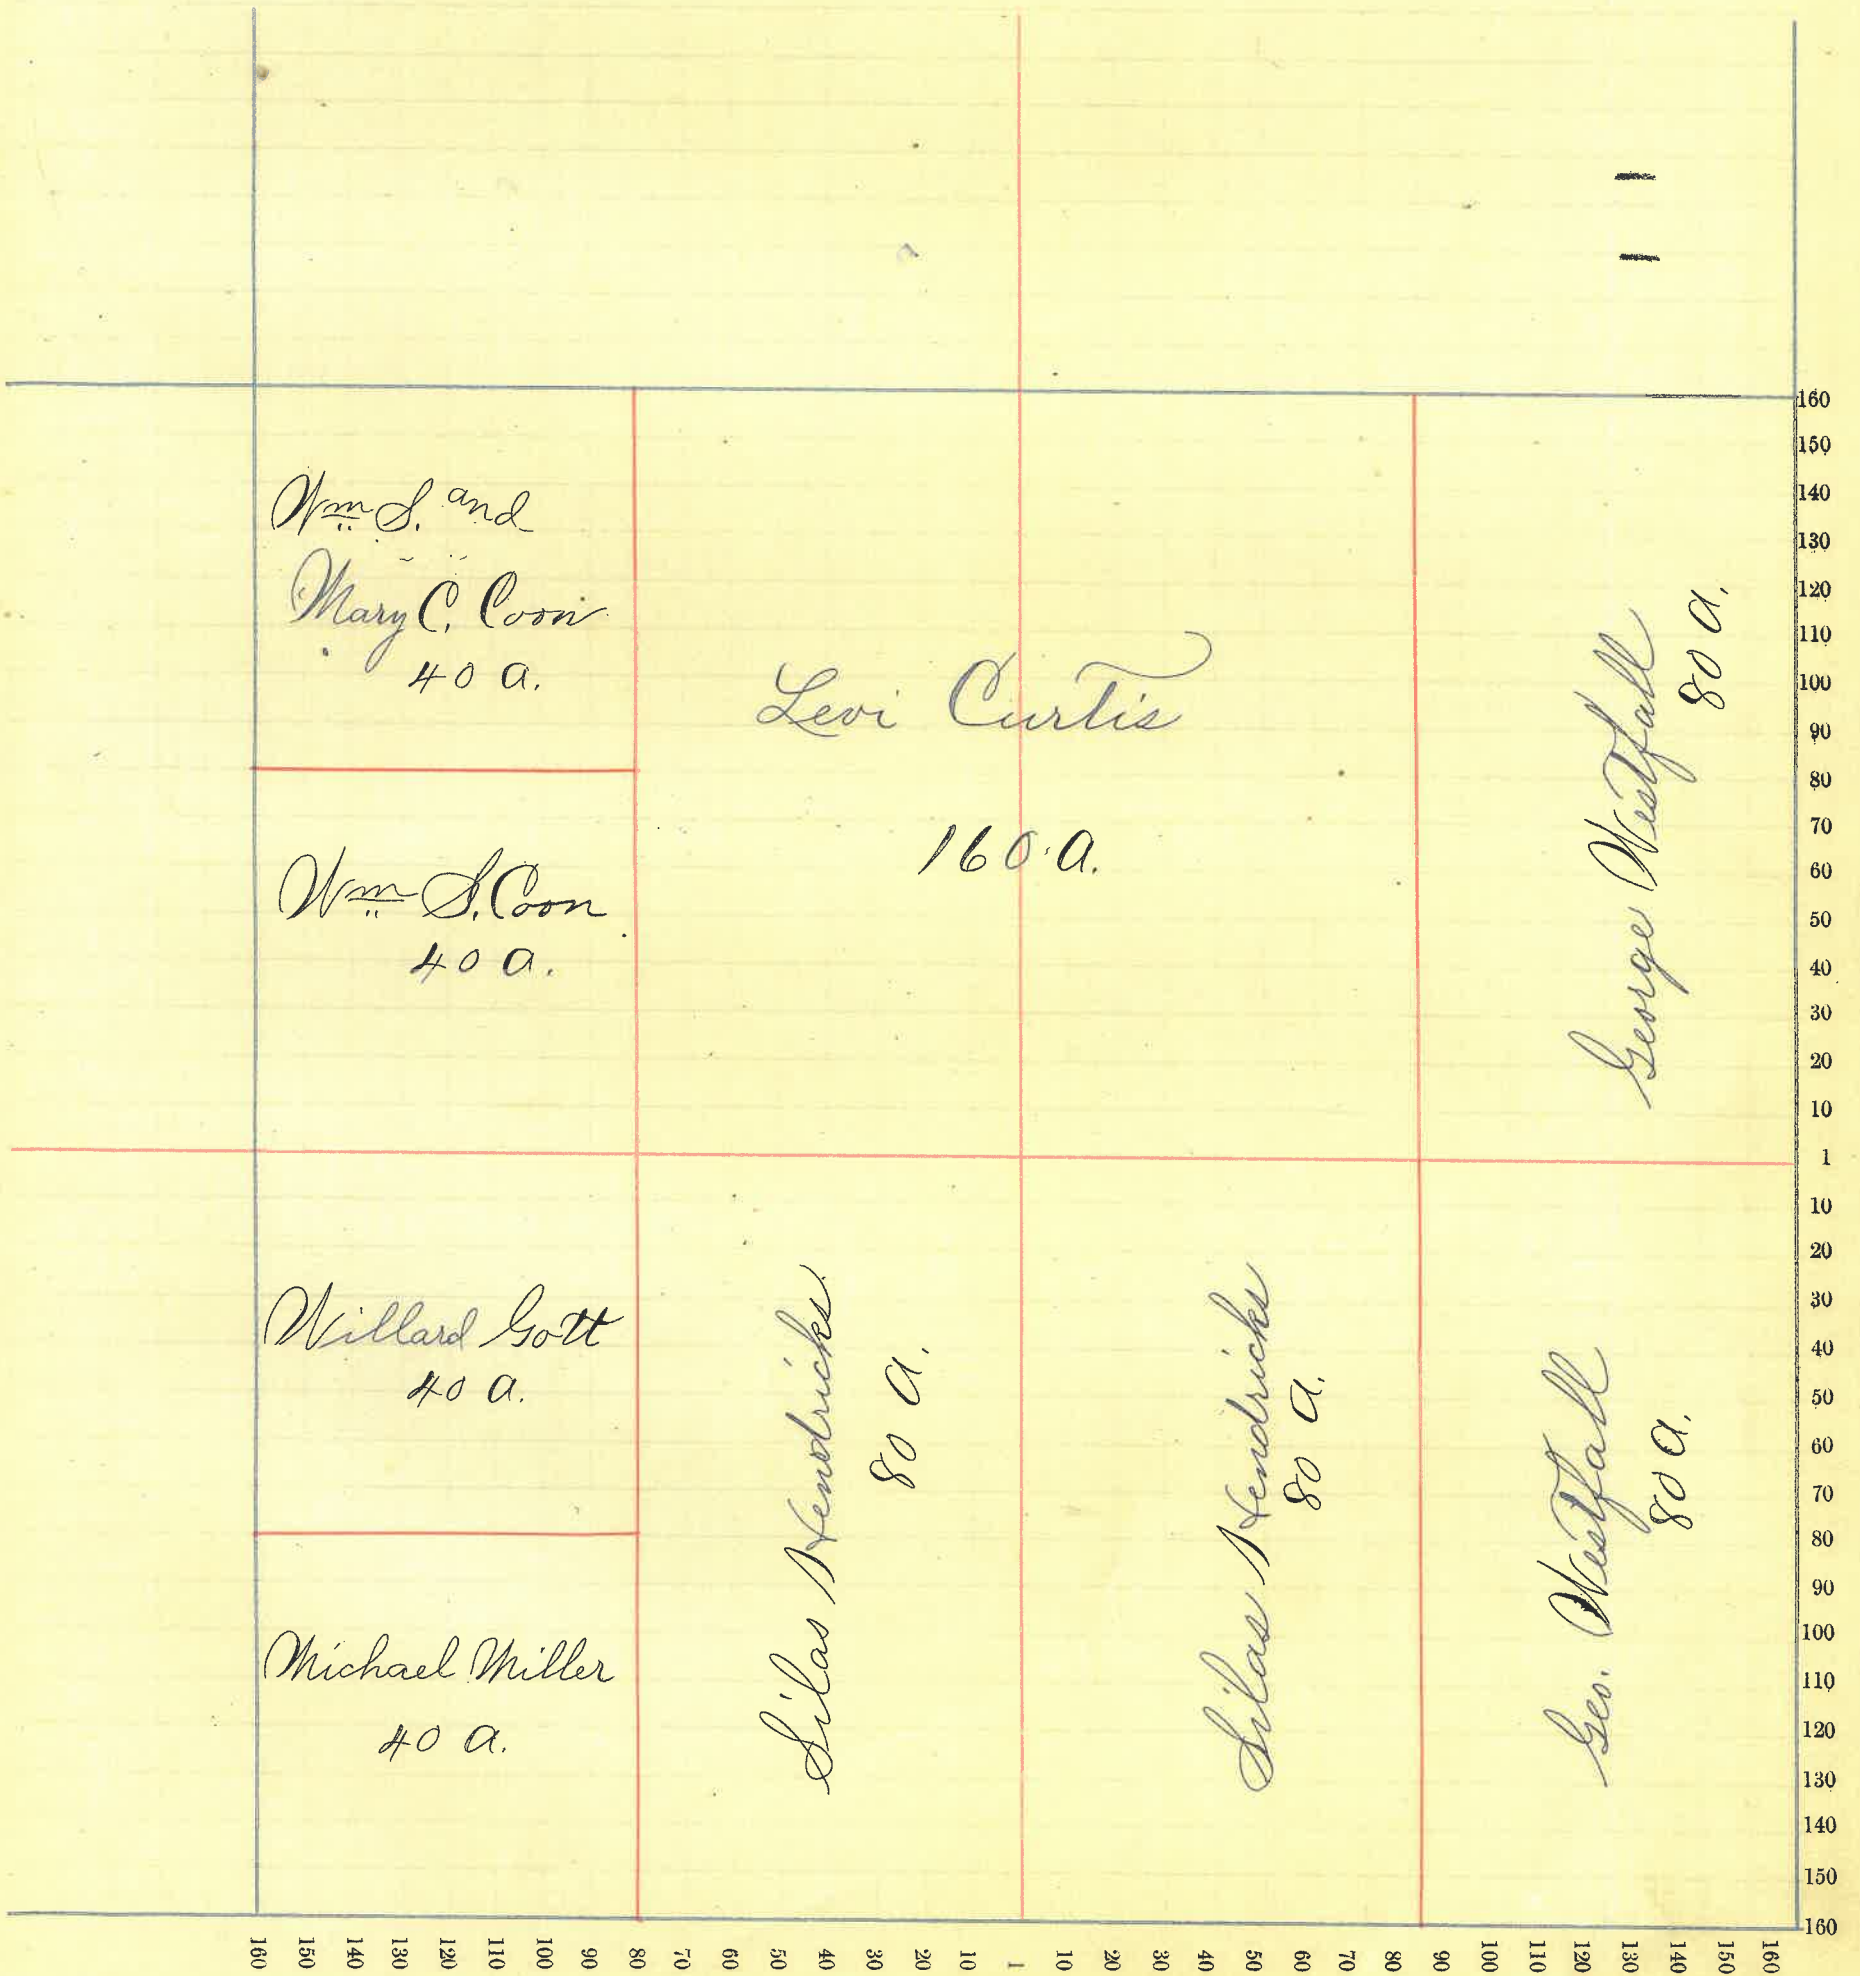 Wm S. and
Mary C. Coon
40 a.
Levi Curtis
160 a.
George Westfall
80 a.
Wm S. Coon
40 a.
Willard Gott
40 a.
Silas Hendricks
80 a.
Silas Hendricks
80 a.
Geo. Westfall
80 a.
Michael Miller
40 a.
160
150
140
130
120
110
100
90
80
70
60
50
40
30
20
10
1
10
20
30
40
50
60
70
80
90
100
110
120
130
140
150
160
160 150 140 130 120 110 100 90 80 70 60 50 40 30 20 10 1 10 20 30 40 50 60 70 80 90 100 110 120 130 140 150 160